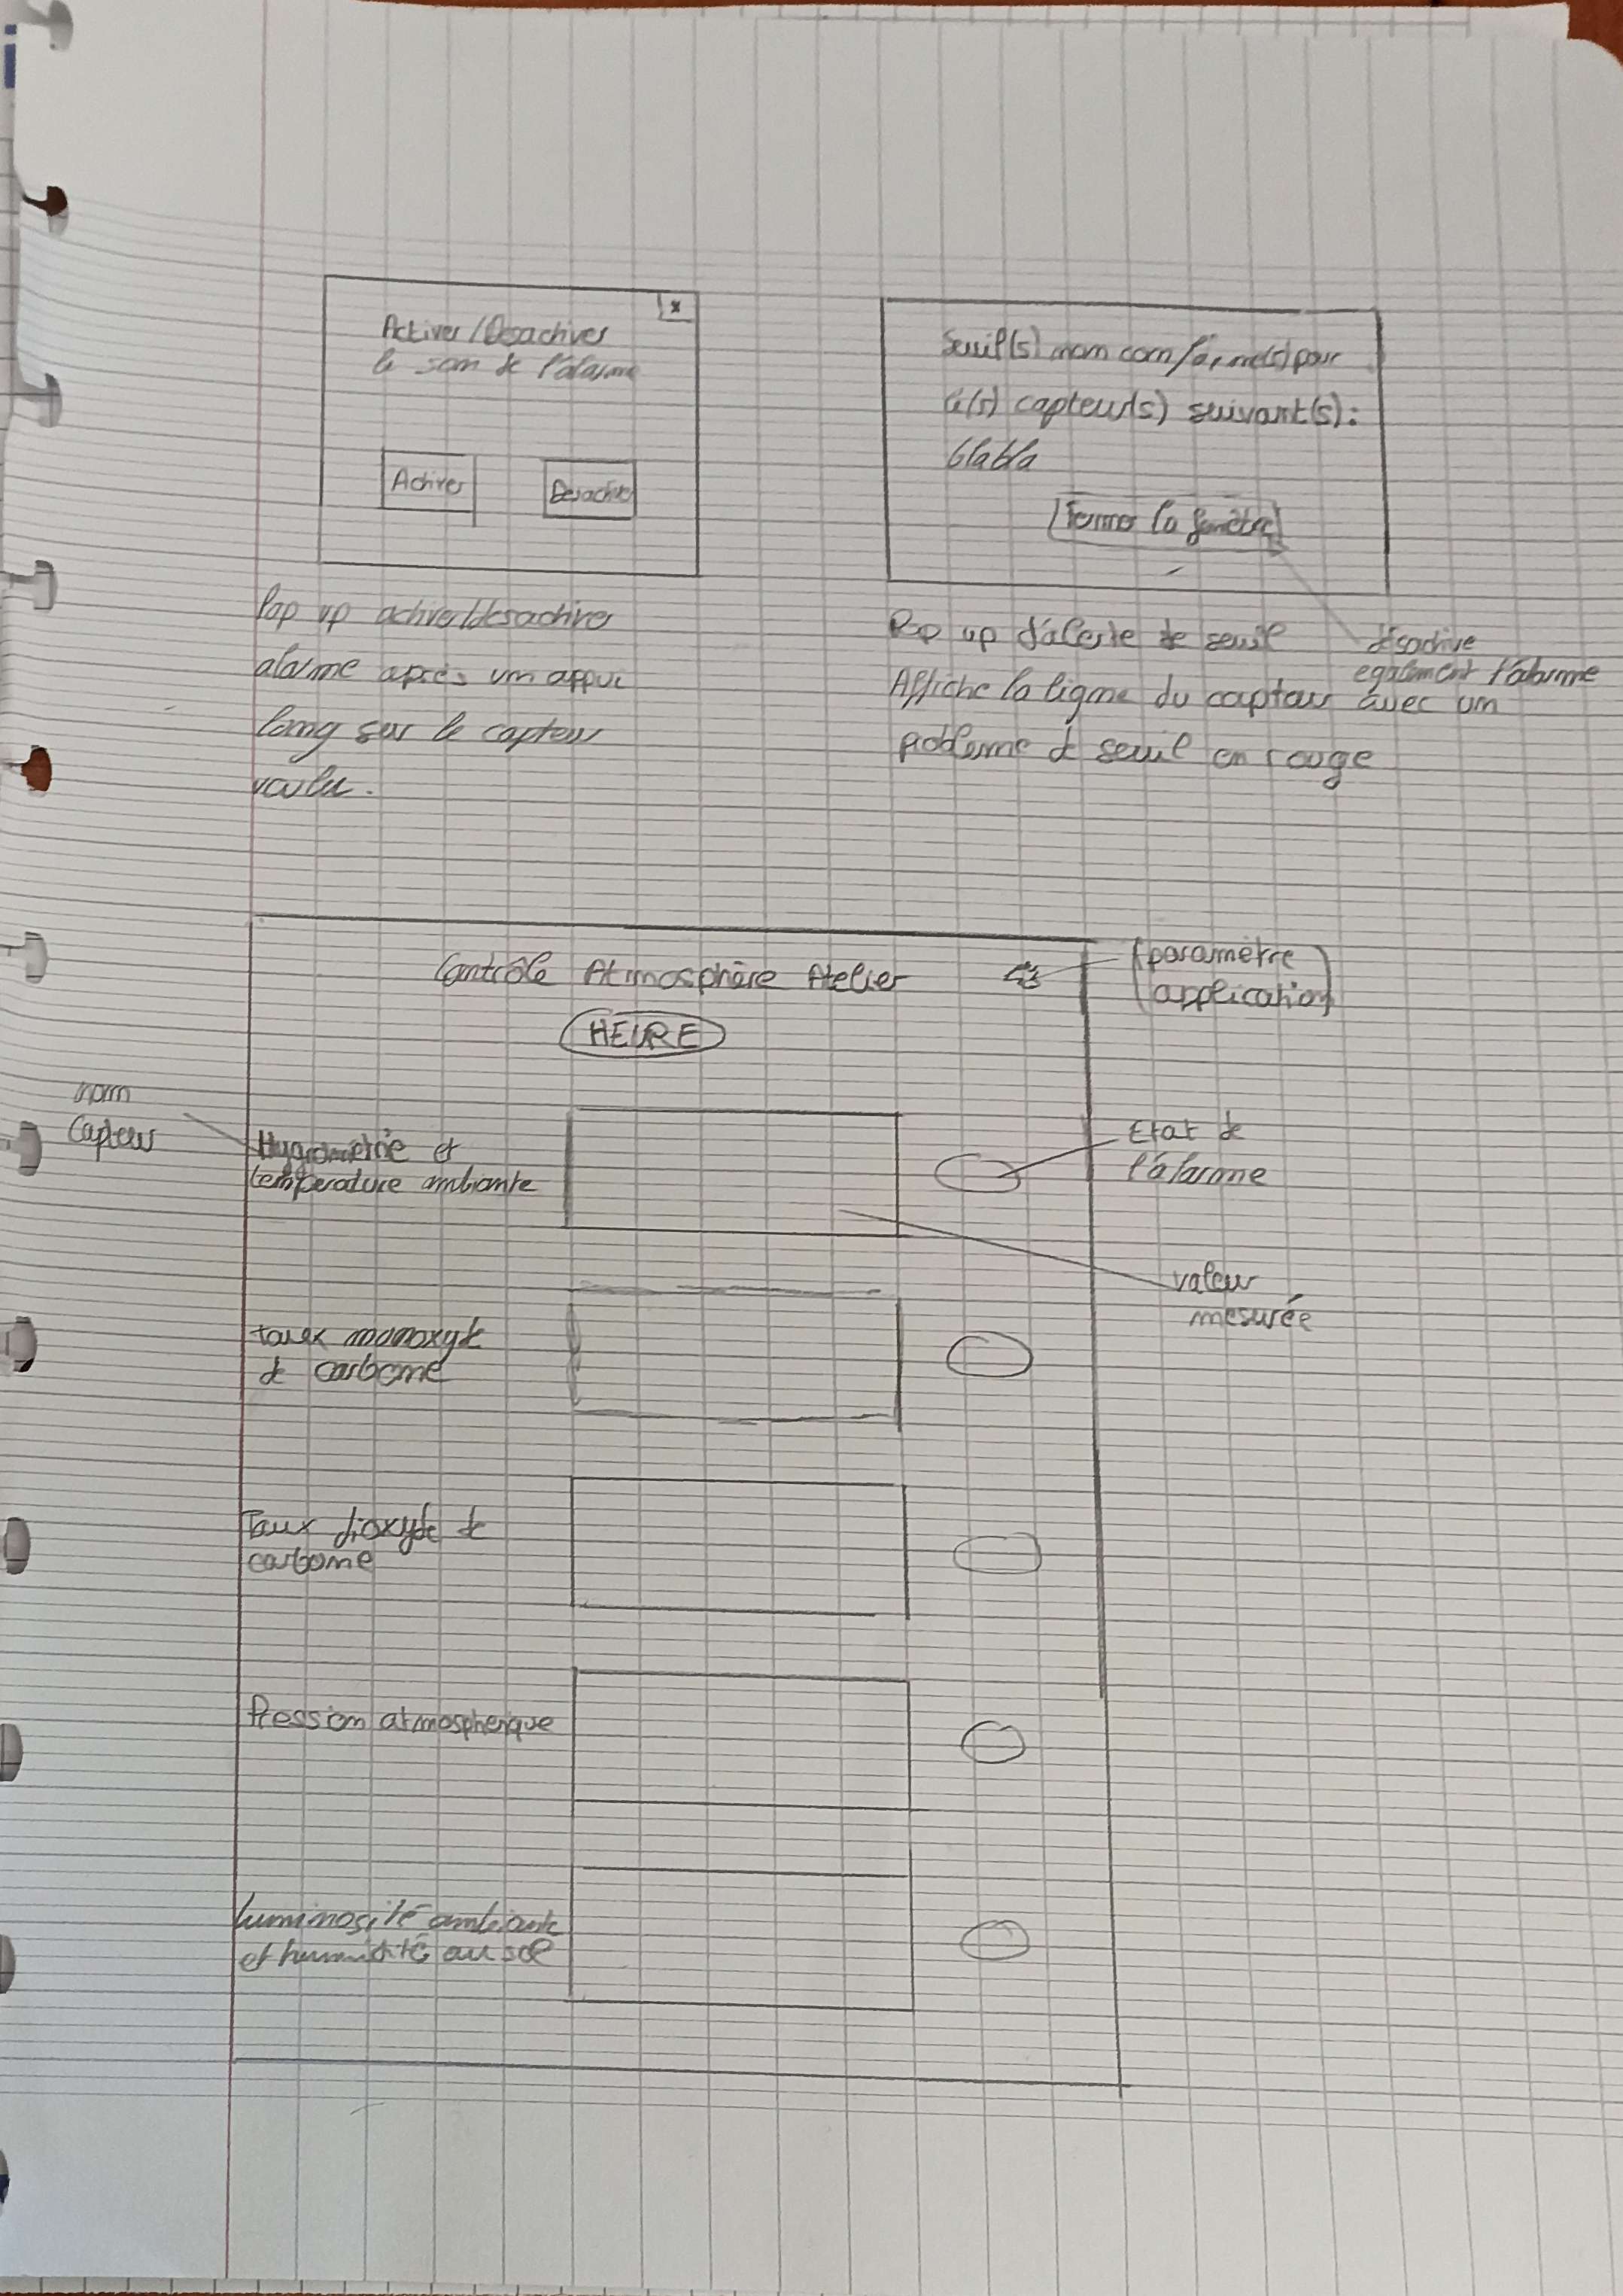 x
Activer/Desactiver
le son de l'alarme
Activer
Desactiver
Pop up activer/desactiver
alarme après un appui
long sur le capteur
voulu.
Seuil(s) non conforme(s) pour
le(s) capteur(s) suivant(s):
blabla
Fermer la fenêtre
désactive
egalement l'alarme
Pop up d'alerte de seuil
Affiche la ligne du capteur avec un
problème de seuil en rouge
Contrôle Atmosphère Atelier
(paramètre
application)
HEURE
nom
Capteur
Hygrométrie et
température ambiante
Etat de
l'alarme
valeur
mesurée
taux monoxyde
de carbone
Taux dioxyde de
carbone
Pression atmospherique
luminosité ambiante
et humidité au sol